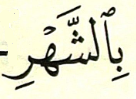 بِٱلشَّهْرِ